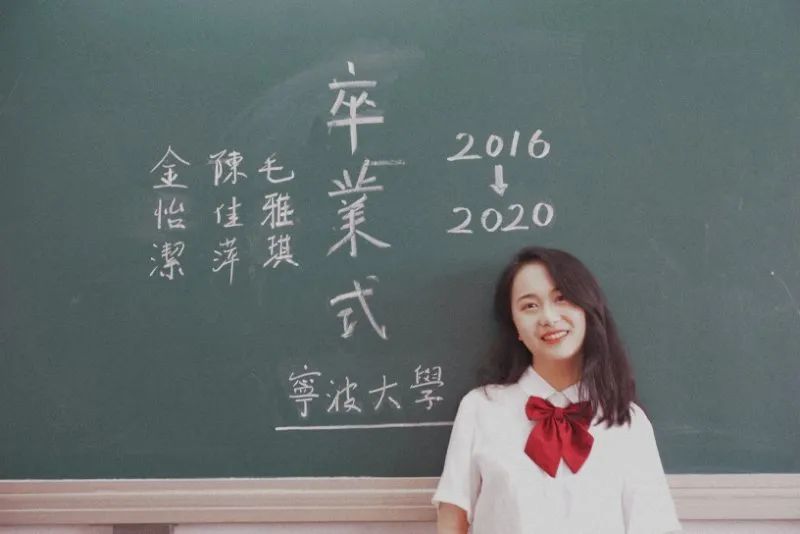 卒業式
毛雅琪
陳佳萍
金怡潔
2016
2020
寧波大學